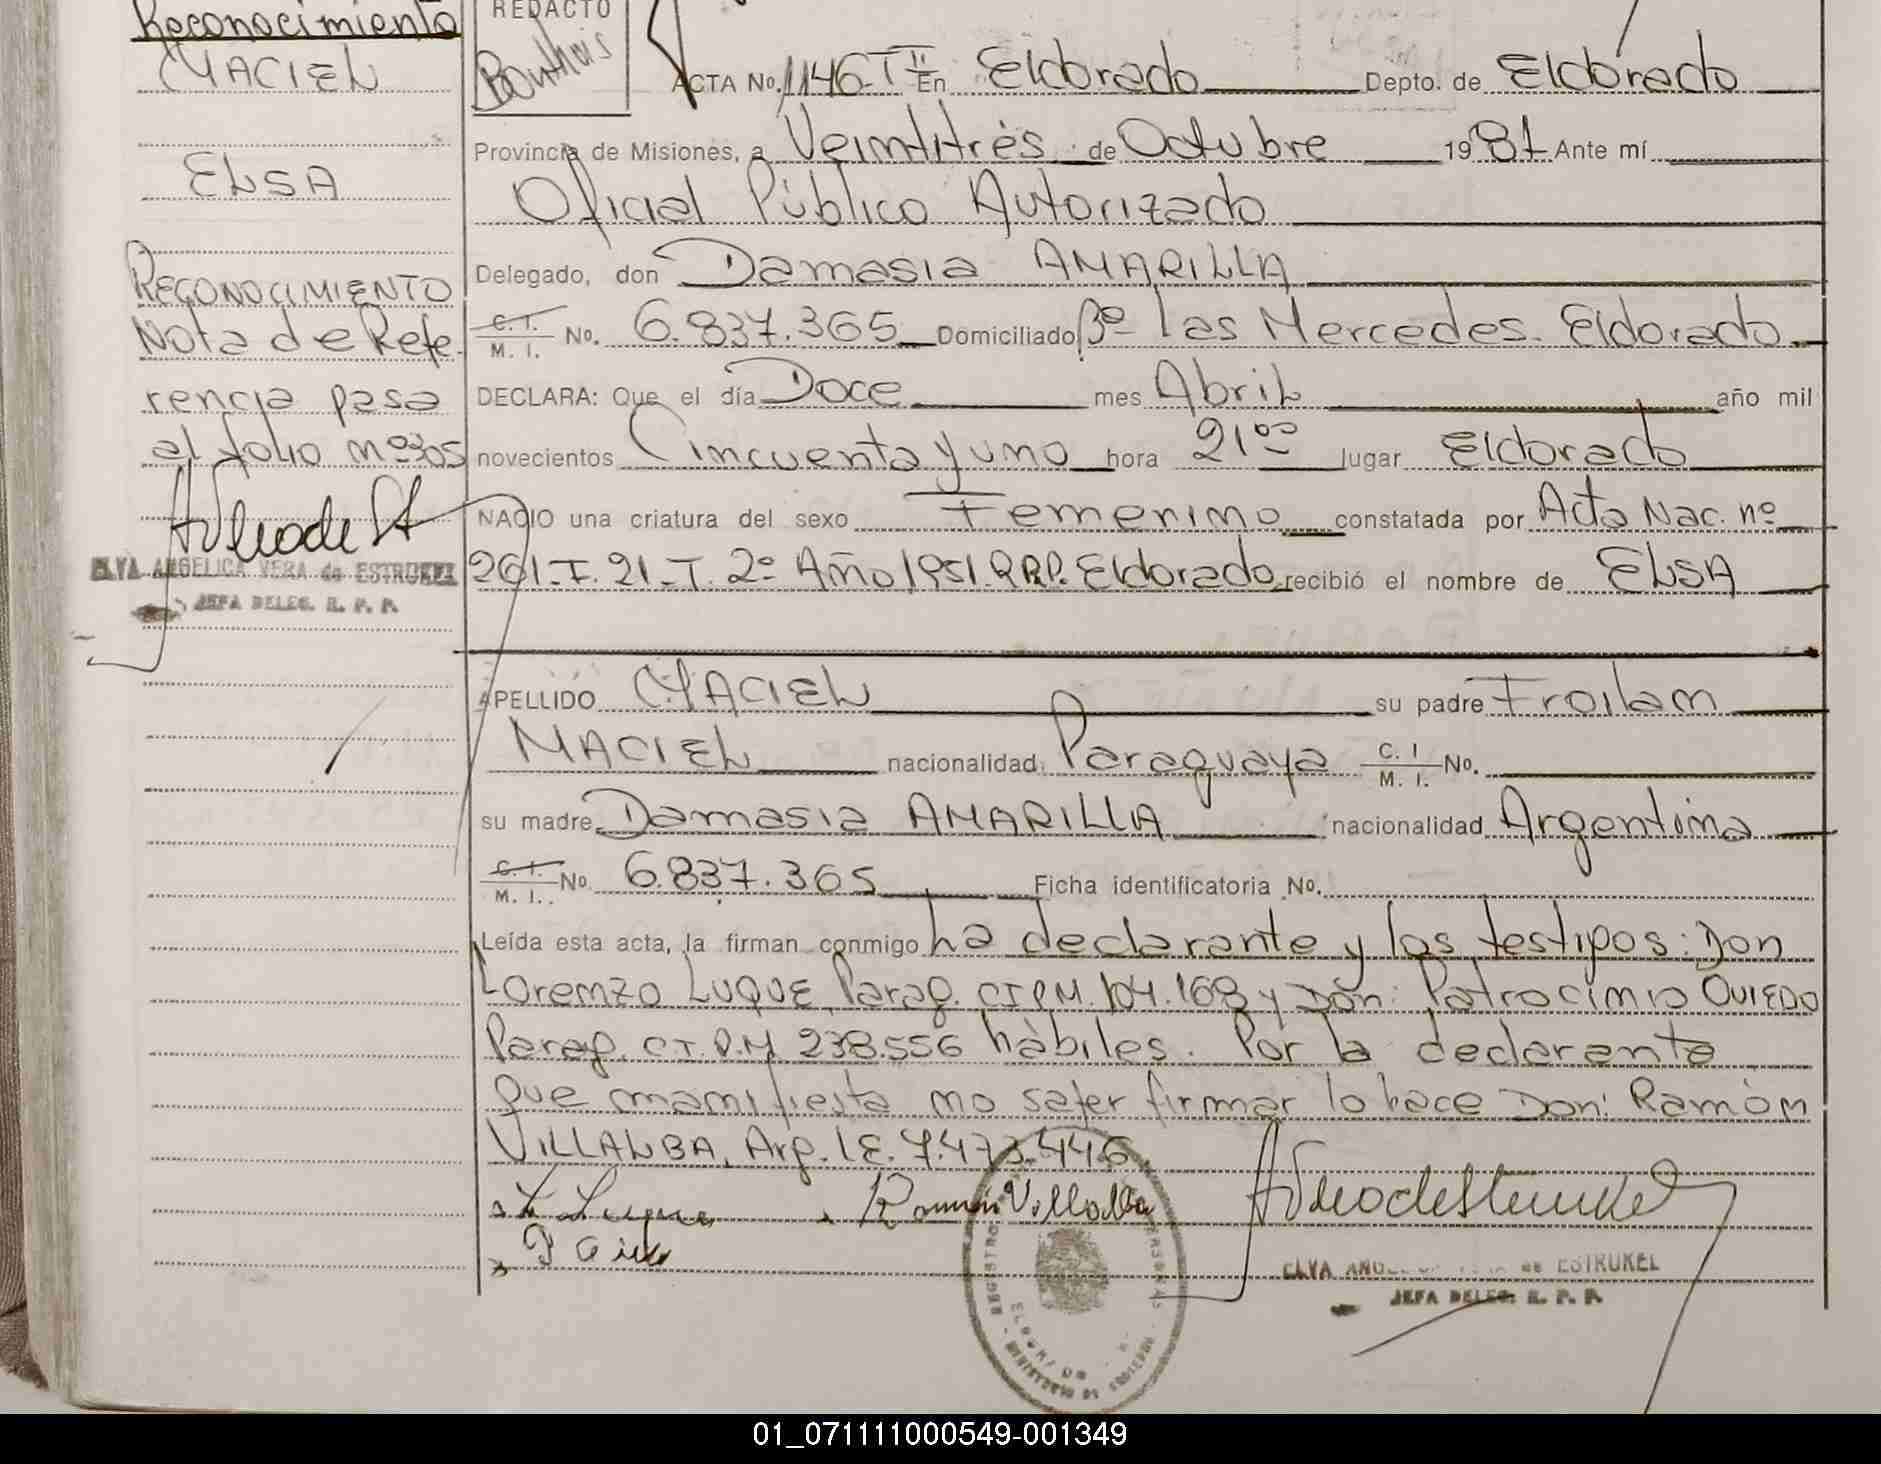 Reconocimiento
MACIEL
ELSA
RECONOCIMIENTO
Nota de Refe
rencia pasa
al folio nº305
ELVA ANGELICA VERA de ESTRUKEL
JEFA DELEG. R. P. P.
REDACTO
ACTA No. 1146-Tº II En Eldorado Depto. de Eldorado
Provincia de Misiones, a Veintitrés de Octubre 1981 Ante mí
Oficial Público Autorizado
Delegado, don Damasia AMARILLA
C. I. / M. I. No. 6.837.365 Domiciliado Bº Las Mercedes. Eldorado
DECLARA: Que el día Doce mes Abril año mil
novecientos Cincuenta y uno hora 21⁰⁰ lugar Eldorado
NACIO una criatura del sexo Femenino constatada por Acta Nac. nº
261-F. 21-T. 2º Año 1951 R.P.P. Eldorado recibió el nombre de ELSA
APELLIDO MACIEL su padre Froilan
MACIEL nacionalidad Paraguaya C. I / M. I. No.
su madre Damasia AMARILLA nacionalidad Argentina
C. I. / M. I. No. 6.837.365 Ficha identificatoria No.
Leída esta acta, la firman conmigo La declarante y los testigos: Don
Lorenzo LUQUE, Parag. CIPM. 104.168 y Don: Patrocinio OVIEDO
Parag. C.I.P.M 238.556 hábiles. Por la declarante
que manifiesta no saber firmar lo hace Don: Ramón
VILLALBA, Arg. LE. 7.473.446
L Luque Ramón Villalba
ELVA ANGELICA VERA de ESTRUKEL
JEFA DELEG. R. P. P.
01_071111000549-001349